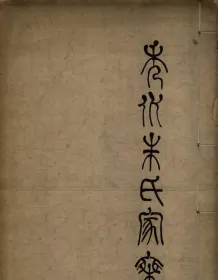 秀水朱氏家乘